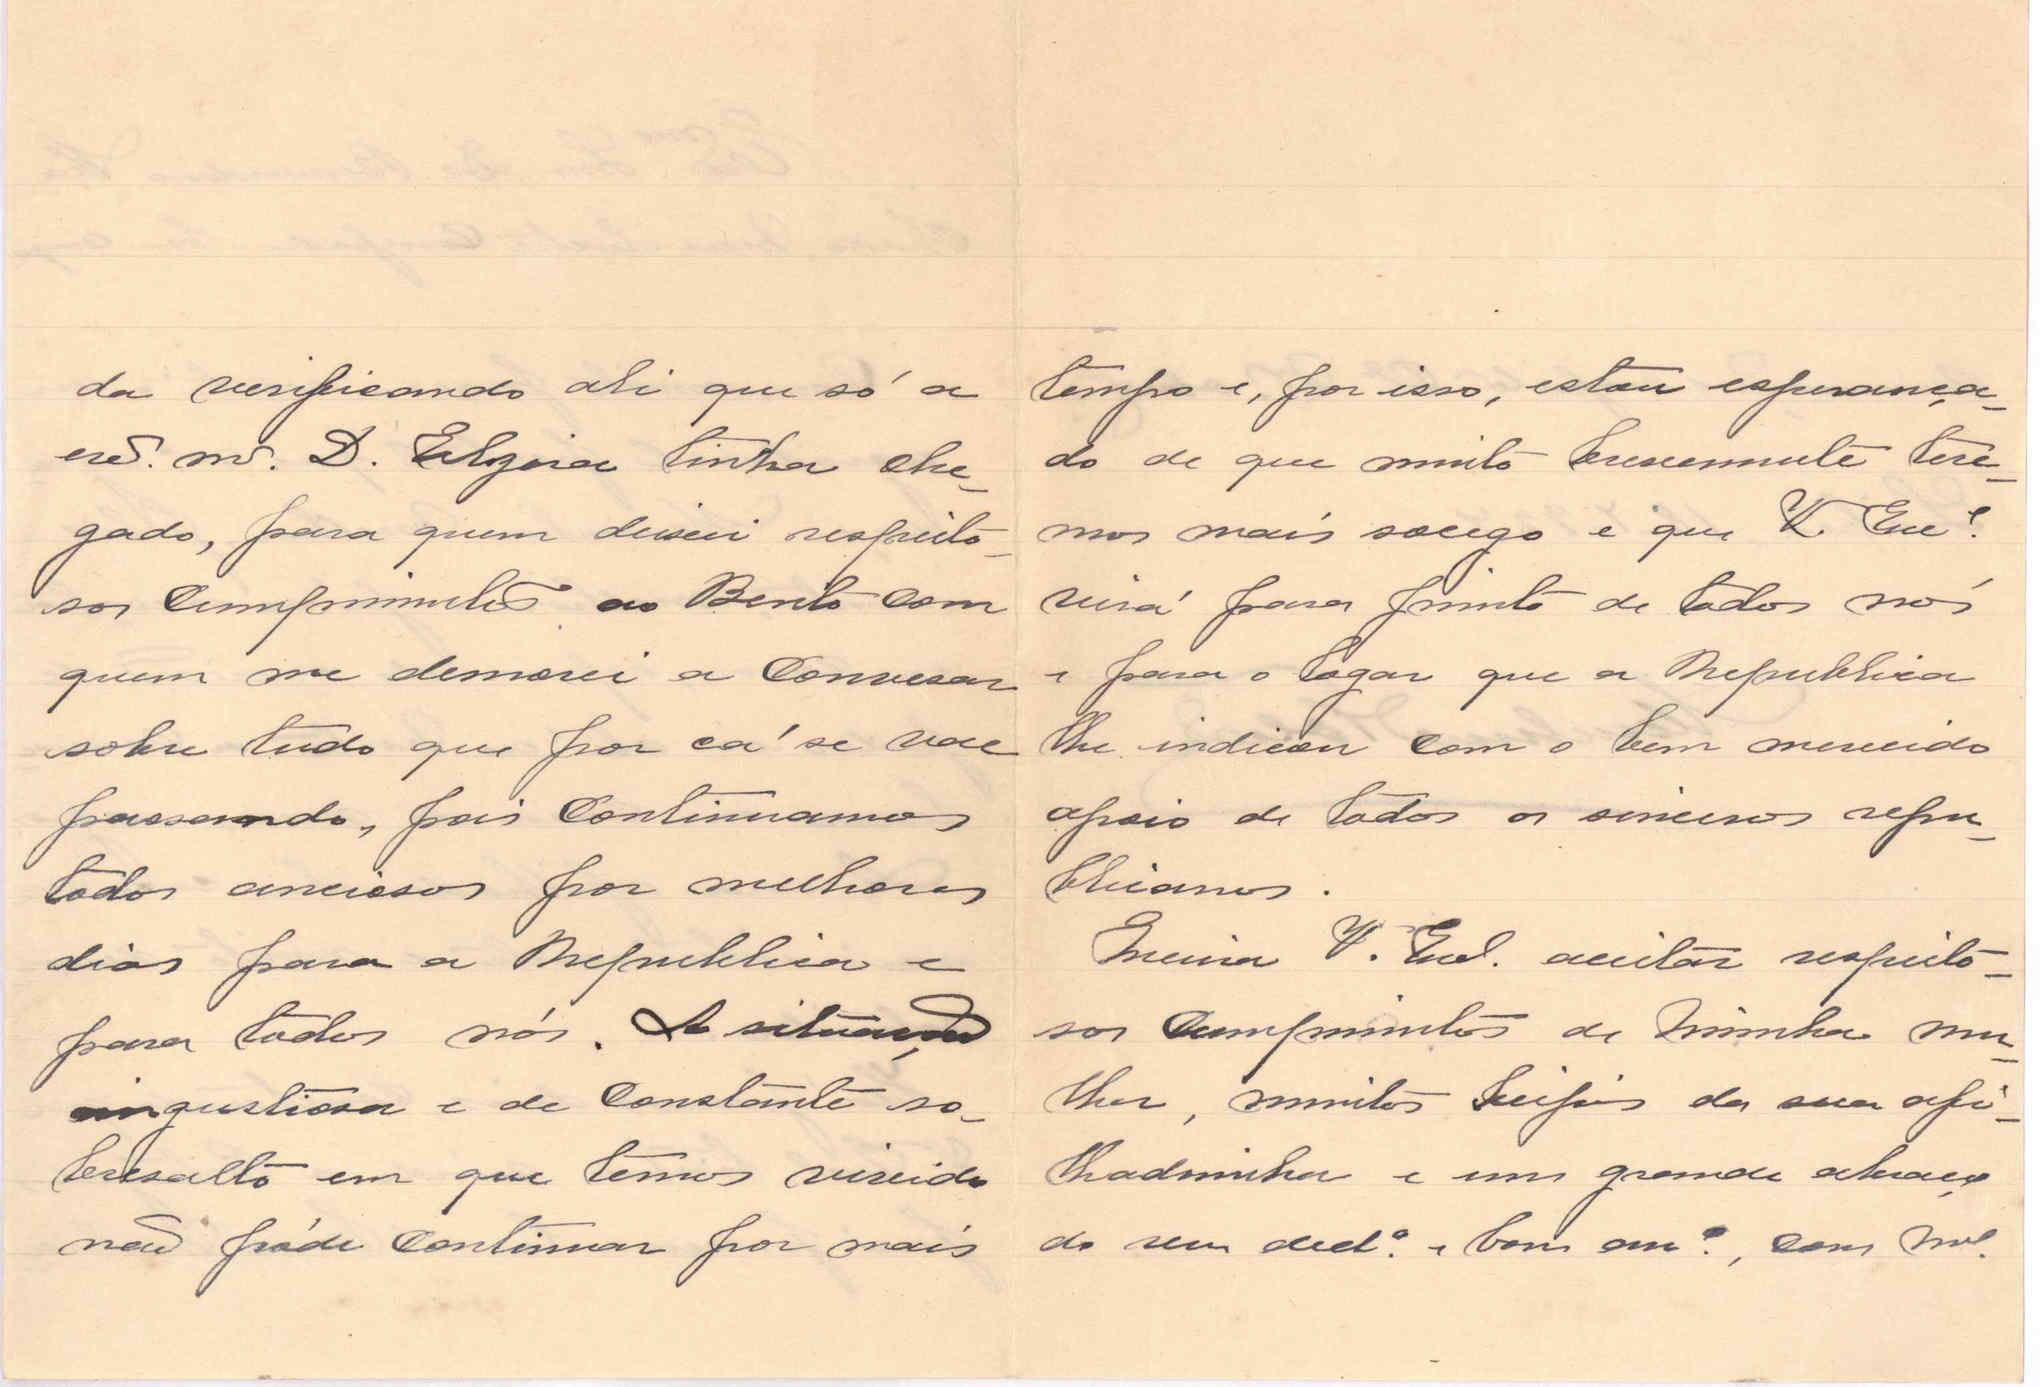 da verificando ali que só a
D. Elzira tinha che-
gado, para quem deixei respeito-
sos cumprimentos ao Bento com
quem me demorei a conversar
sobre tudo que por cá se vae
passando, pois continuamos
todos anciosos por melhores
dias para a Republica e
para todos nós. A situação
angustiosa e de constante so-
bresalto em que temos vivido
não póde continuar por mais
tempo e, por isso, estou esperança-
do de que muito brevemente tere-
mos mais socego e que V. Exc.ª
virá para junto de todos nós
e para o logar que a Republica
lhe indicou com o bem merecido
apoio de todos os sinceros repu-
blicanos.
Queira V. Exc. aceitar respeito-
sos cumprimentos de minha mu-
lher, muitos beijos da sua afi-
lhadinha e um grande abraço
do seu ded.º e bom am.º, com